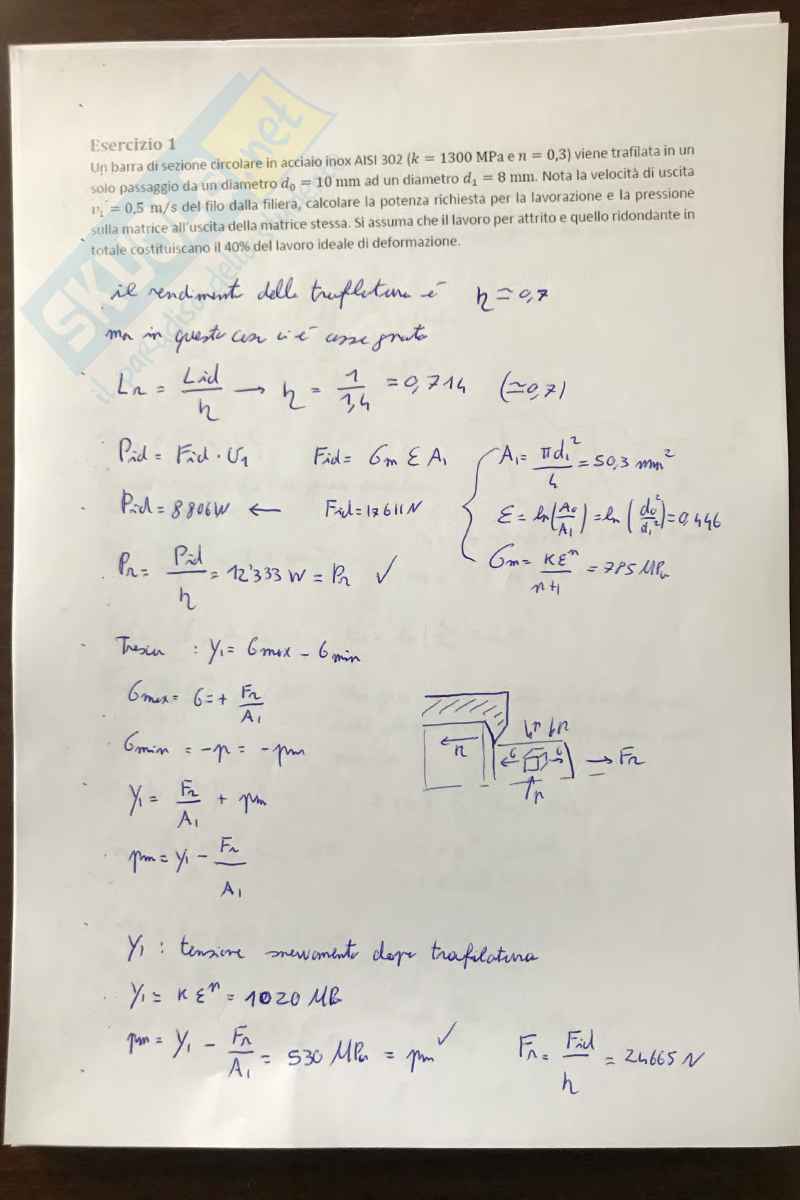 Esercizio 1
Un barra di sezione circolare in acciaio inox AISI 302 (k = 1300 MPa e n = 0,3) viene trafilata in un
solo passaggio da un diametro d₀ = 10 mm ad un diametro d₁ = 8 mm. Nota la velocità di uscita
v₁ = 0,5 m/s del filo dalla filiera, calcolare la potenza richiesta per la lavorazione e la pressione
sulla matrice all'uscita della matrice stessa. Si assuma che il lavoro per attrito e quello ridondante in
totale costituiscano il 40% del lavoro ideale di deformazione.
il rendimento della trafilatura è η ≃ 0,7
ma in questo caso ci è assegnato
Lr = Lid/η → η = 1/1,4 = 0,714 (≃0,7)
Pid = Fid · v₁ Fid = σm ε A₁ A₁ = πd₁²/4 = 50,3 mm²
Pid = 8806W ← Fid = 17611N ε = ln(A₀/A₁) = ln(d₀²/d₁²) = 0,446
Pr = Pid/η = 12'333 W = Pr ✓ σm = kεⁿ/n+1 = 785 MPa
Tresca : Y₁ = σmax - σmin
σmax = σ = + Fr/A₁
σmin = -p = -pm
Y₁ = Fr/A₁ + pm
pm = Y₁ - Fr/A₁
r
σ σ → Fr
p
Y₁ : tensione snervamento dopo trafilatura
Y₁ = k εⁿ = 1020 MPa
pm = Y₁ - Fr/A₁ = 530 MPa = pm ✓ Fr = Fid/η = 24665 N